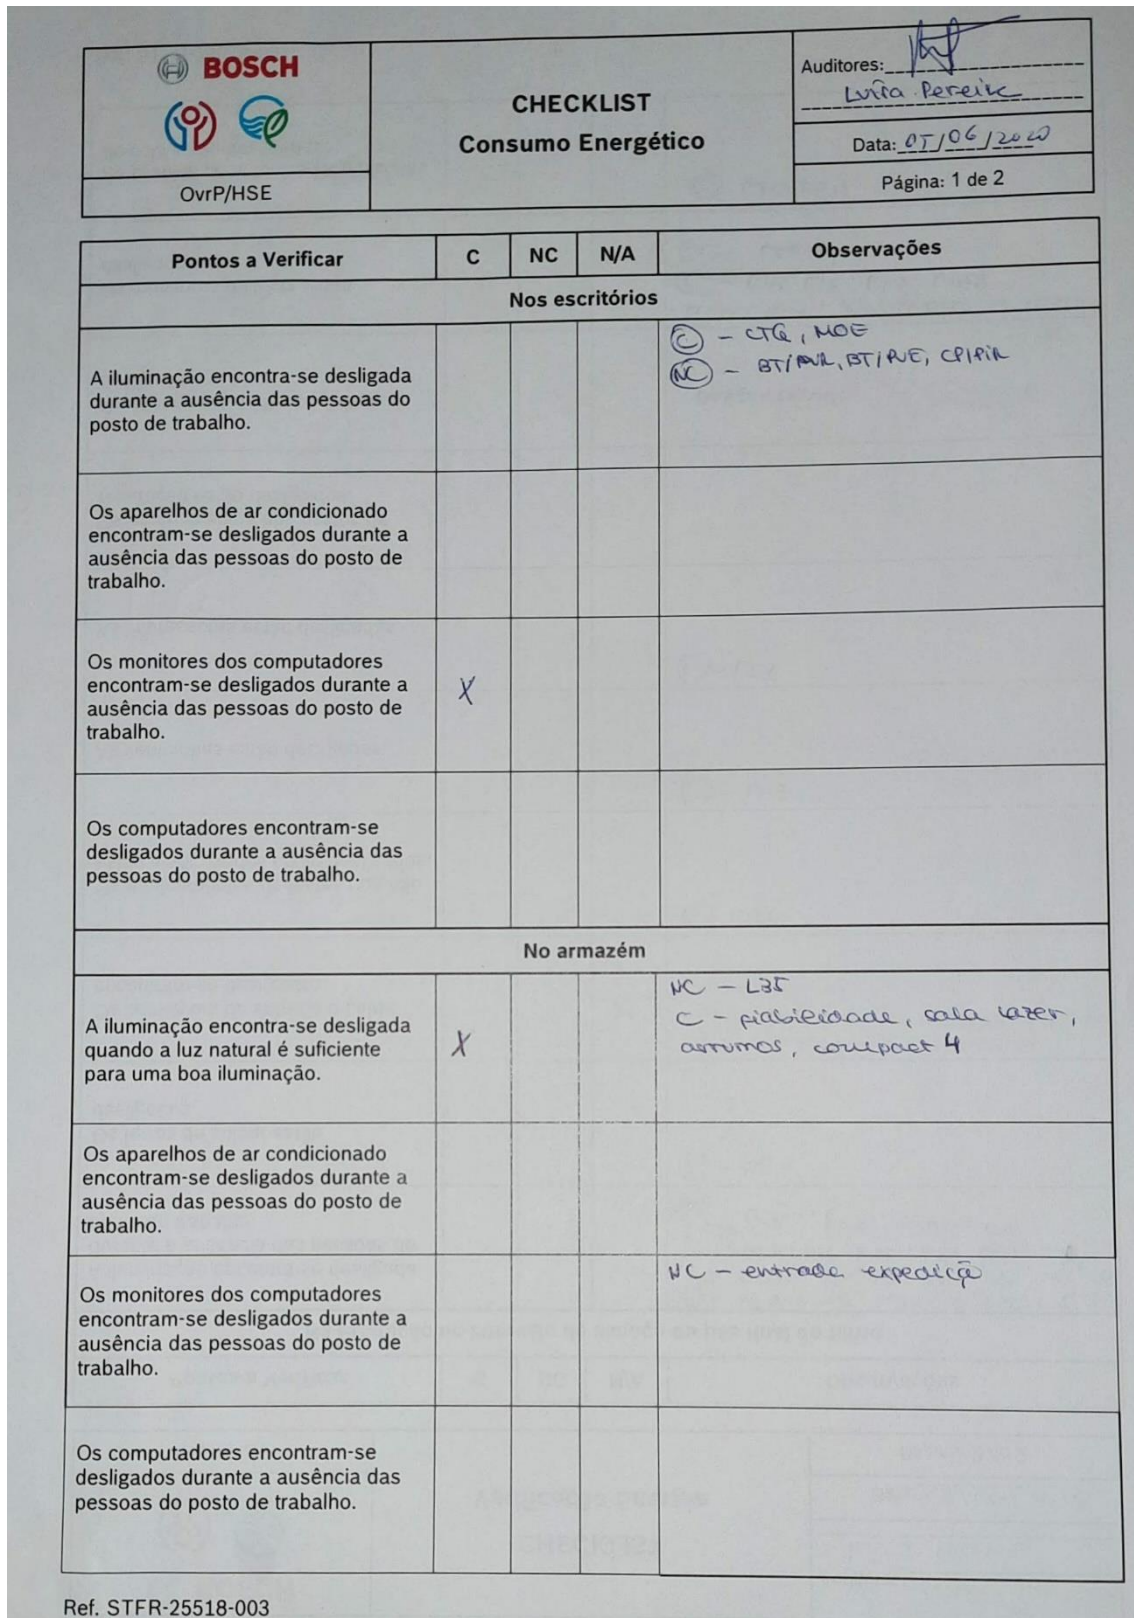 BOSCH
OvrP/HSE
CHECKLIST
Consumo Energético
Auditores:
Luísa Pereira
Data: 05/06/2020
Página: 1 de 2
Pontos a Verificar C NC N/A Observações
Nos escritórios
A iluminação encontra-se desligada
durante a ausência das pessoas do
posto de trabalho.
C - CTQ, MOE
NC - BT/ , BT/PJE, CP/PIR
Os aparelhos de ar condicionado
encontram-se desligados durante a
ausência das pessoas do posto de
trabalho.
Os monitores dos computadores
encontram-se desligados durante a
ausência das pessoas do posto de
trabalho.
X
Os computadores encontram-se
desligados durante a ausência das
pessoas do posto de trabalho.
No armazém
A iluminação encontra-se desligada
quando a luz natural é suficiente
para uma boa iluminação.
X
NC - L35
C - fiabilidade, sala lazer,
arrumos, compact 4
Os aparelhos de ar condicionado
encontram-se desligados durante a
ausência das pessoas do posto de
trabalho.
Os monitores dos computadores
encontram-se desligados durante a
ausência das pessoas do posto de
trabalho.
NC - entrada expedição
Os computadores encontram-se
desligados durante a ausência das
pessoas do posto de trabalho.
Ref. STFR-25518-003